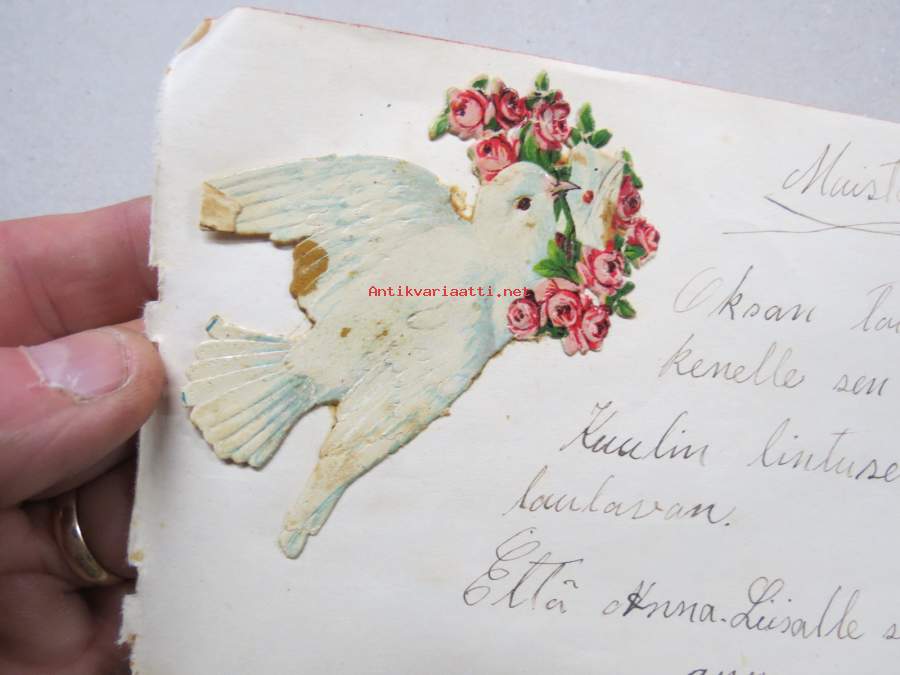 Muist
Antikvariaatti.net
Oksan lau
kenelle sen
Kuulin lintuse
laulavan.
Että Anna-Liisalle s